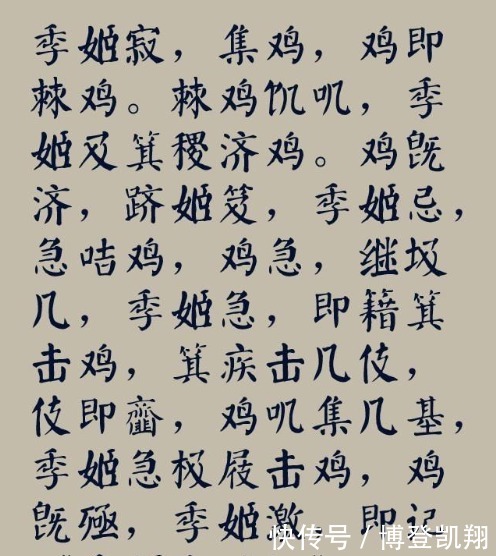 季姬寂，集鸡，鸡即
棘鸡。棘鸡饥叽，季
姬及箕稷济鸡。鸡既
济，跻姬笈，季姬忌，
急咭鸡，鸡急，继圾
几，季姬急，即籍箕
击鸡，箕疾击几伎，
伎即齑，鸡叽集几基，
季姬急极屐击鸡，鸡
既殛，季姬激，即记
快传号 / 博登凯翔